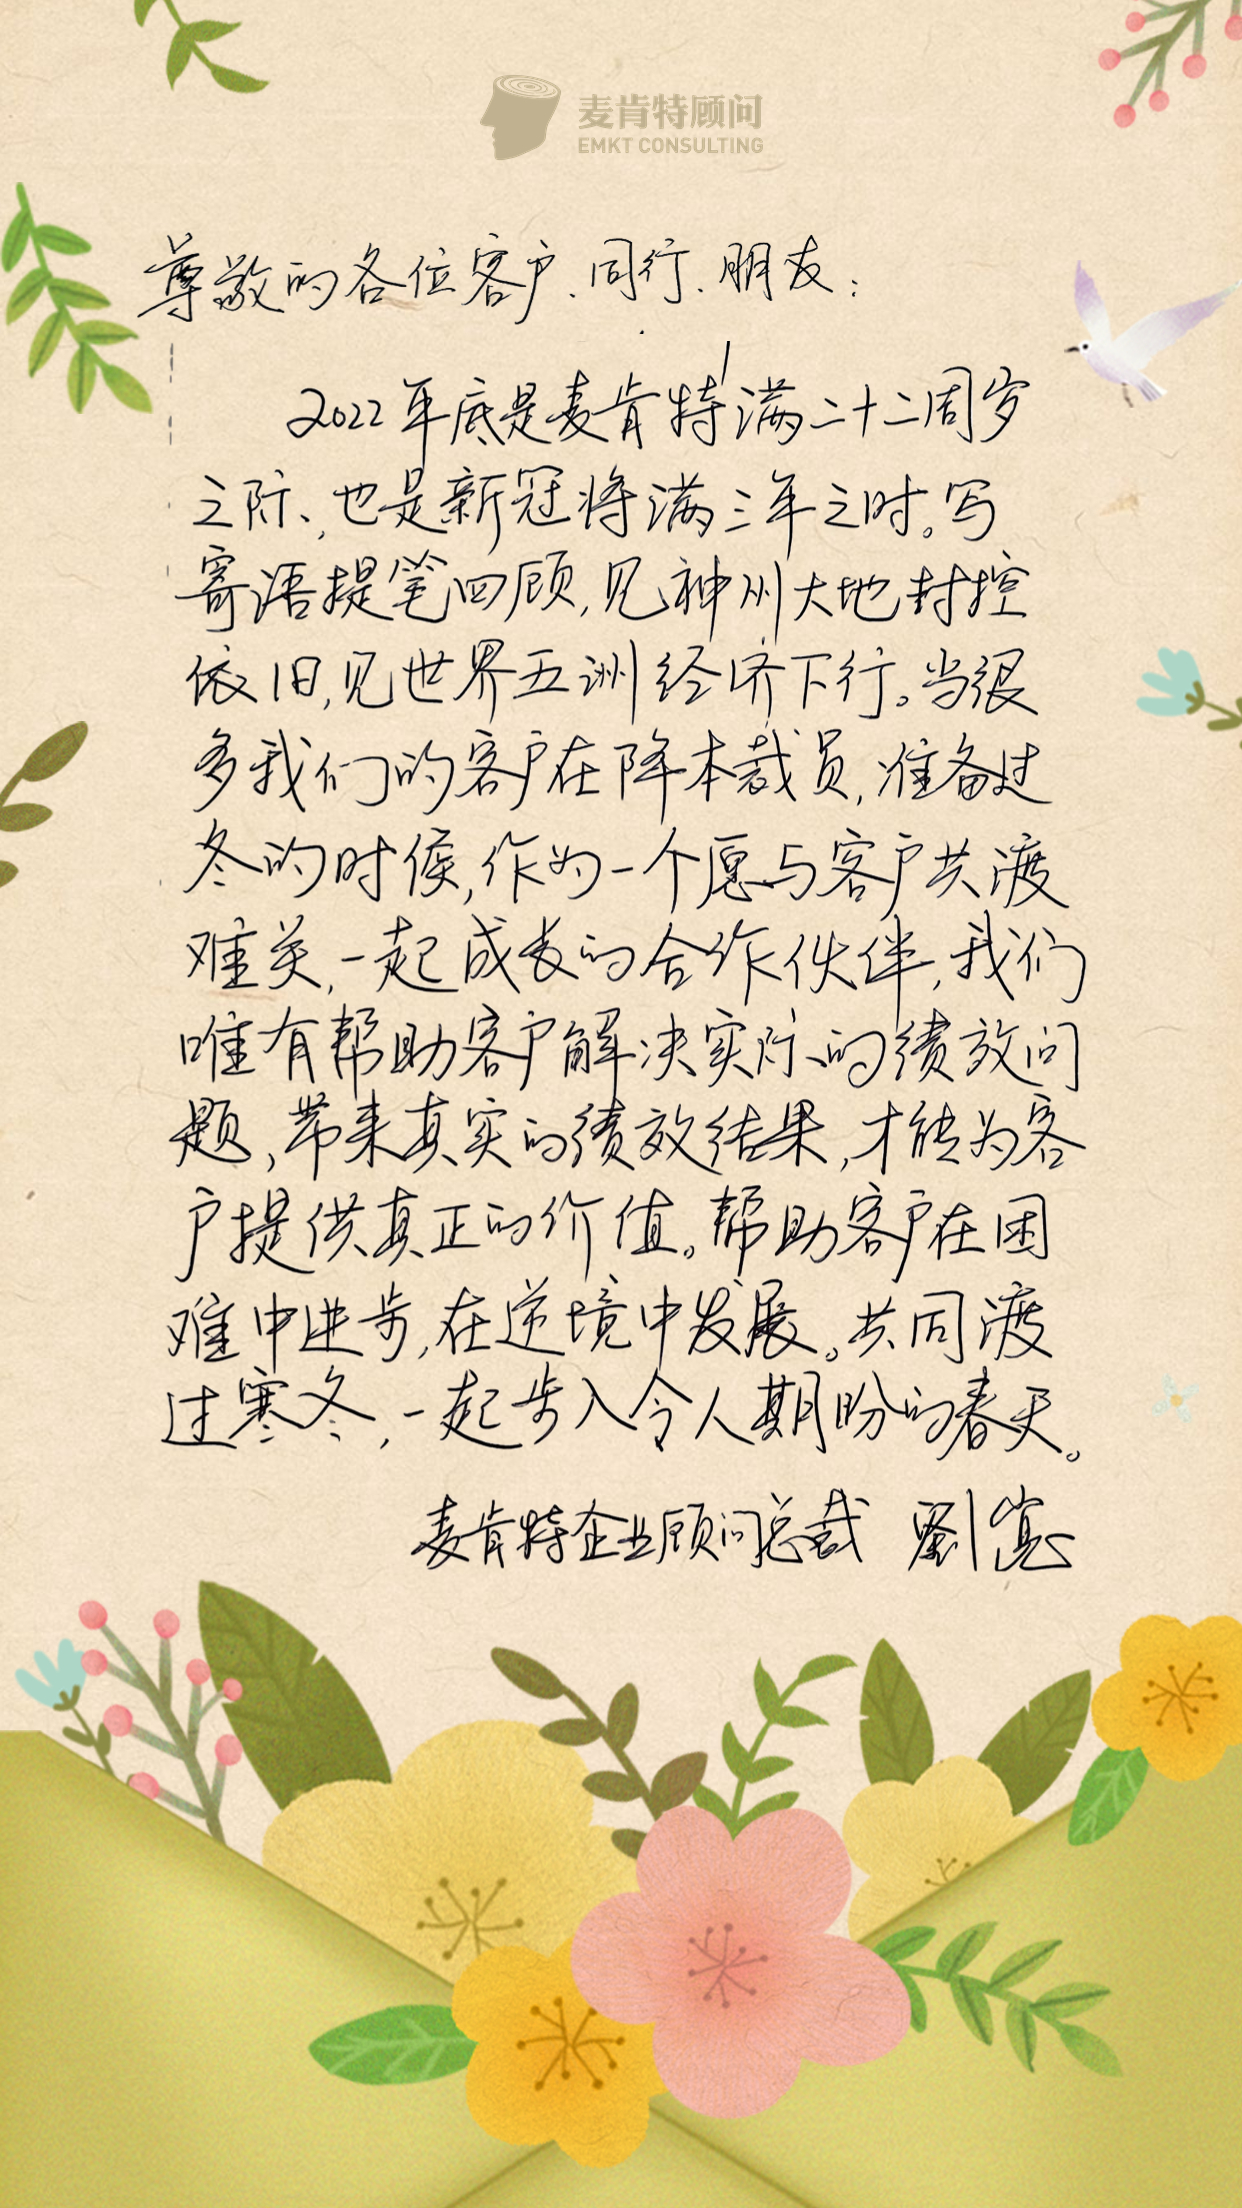 麦肯特顾问
EMKT CONSULTING
尊敬的各位客户、同行、朋友：
2022年底是麦肯特满二十二周岁
之际，也是新冠将满三年之时。写
寄语提笔回顾，见神州大地封控
依旧，见世界五洲经济下行。当很
多我们的客户在降本裁员，准备过
冬的时候，作为一个愿与客户共渡
难关，一起成长的合作伙伴，我们
唯有帮助客户解决实际的绩效问
题，带来真实的绩效结果，才能为客
户提供真正的价值。帮助客户在困
难中进步，在逆境中发展。共同渡
过寒冬，一起步入令人期盼的春天。
麦肯特企业顾问总裁 劉